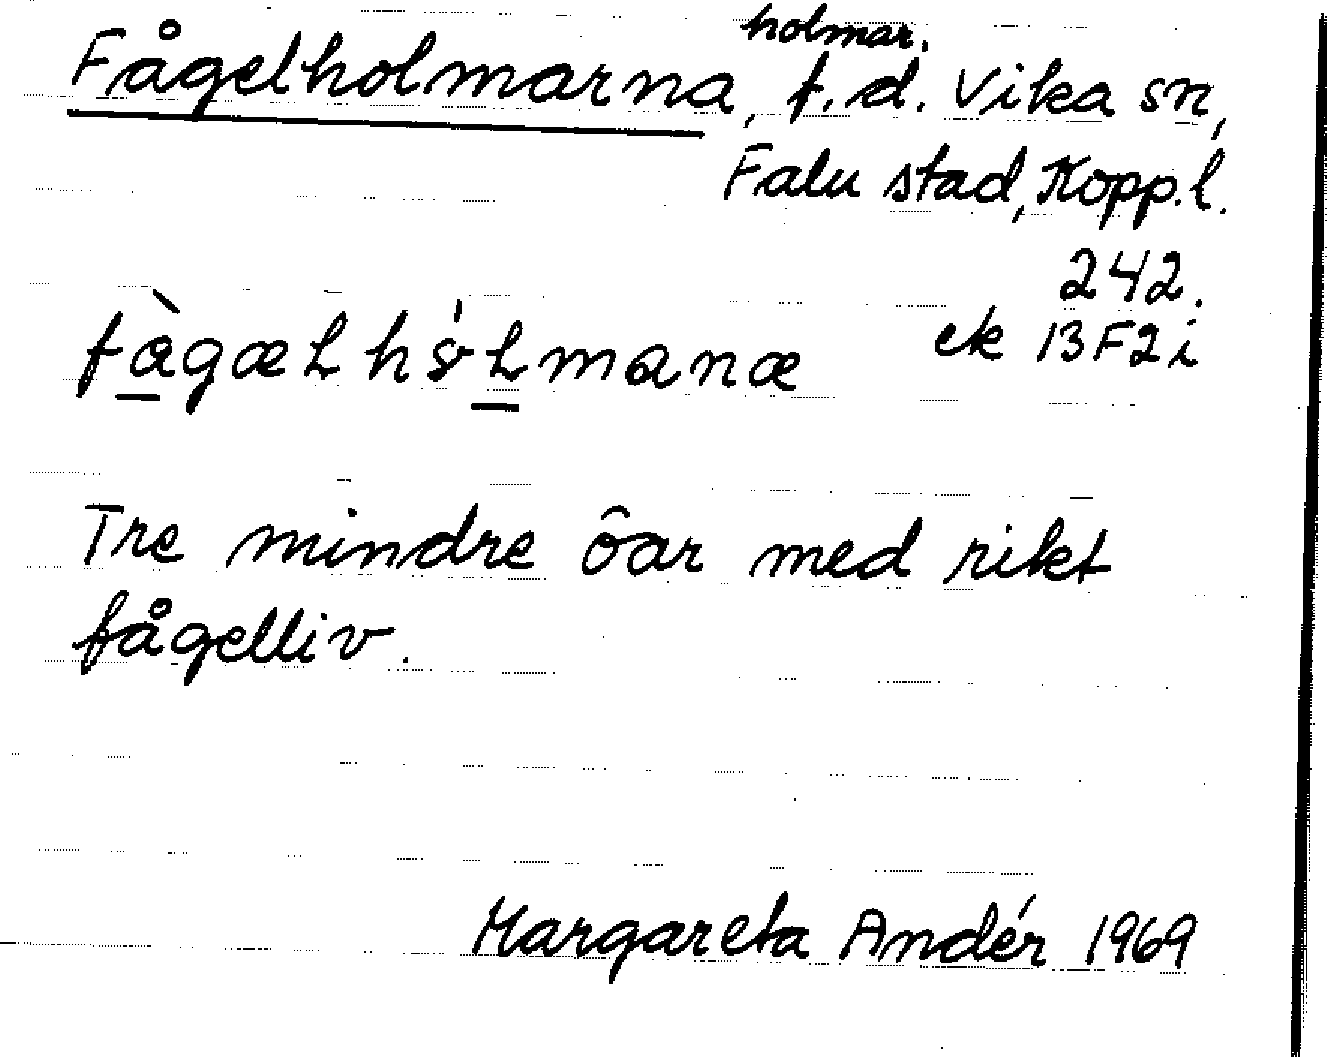 holmar.
Fågelholmarna, f.d. Vika sn,
Falu stad, Kopp.l.
242.
ek 13F2i
Tre mindre öar med rikt
fågelliv.
Margareta Andér 1969